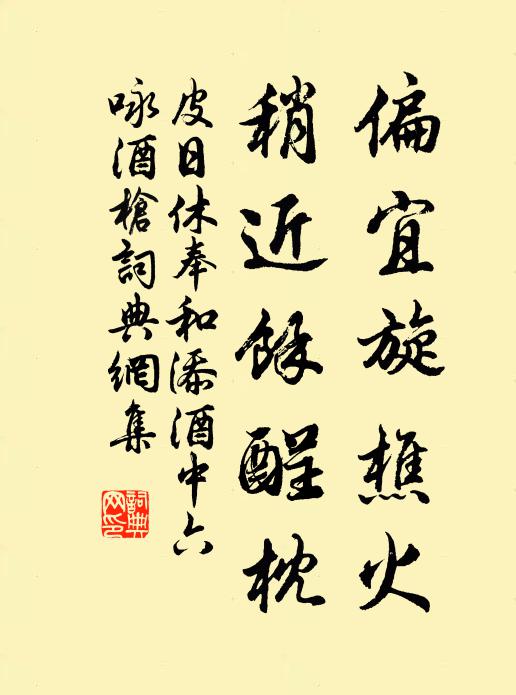 偏宜旋樵火
稍近餘醒枕
皮日休奉和添酒中六
咏酒槍詞典網集
詞典网印